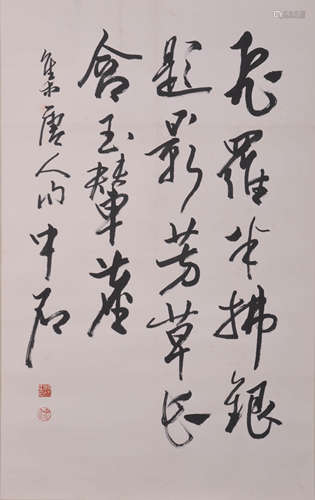 飛羅半拂銀
題影芳草長
含玉輦塵
集唐人句中石